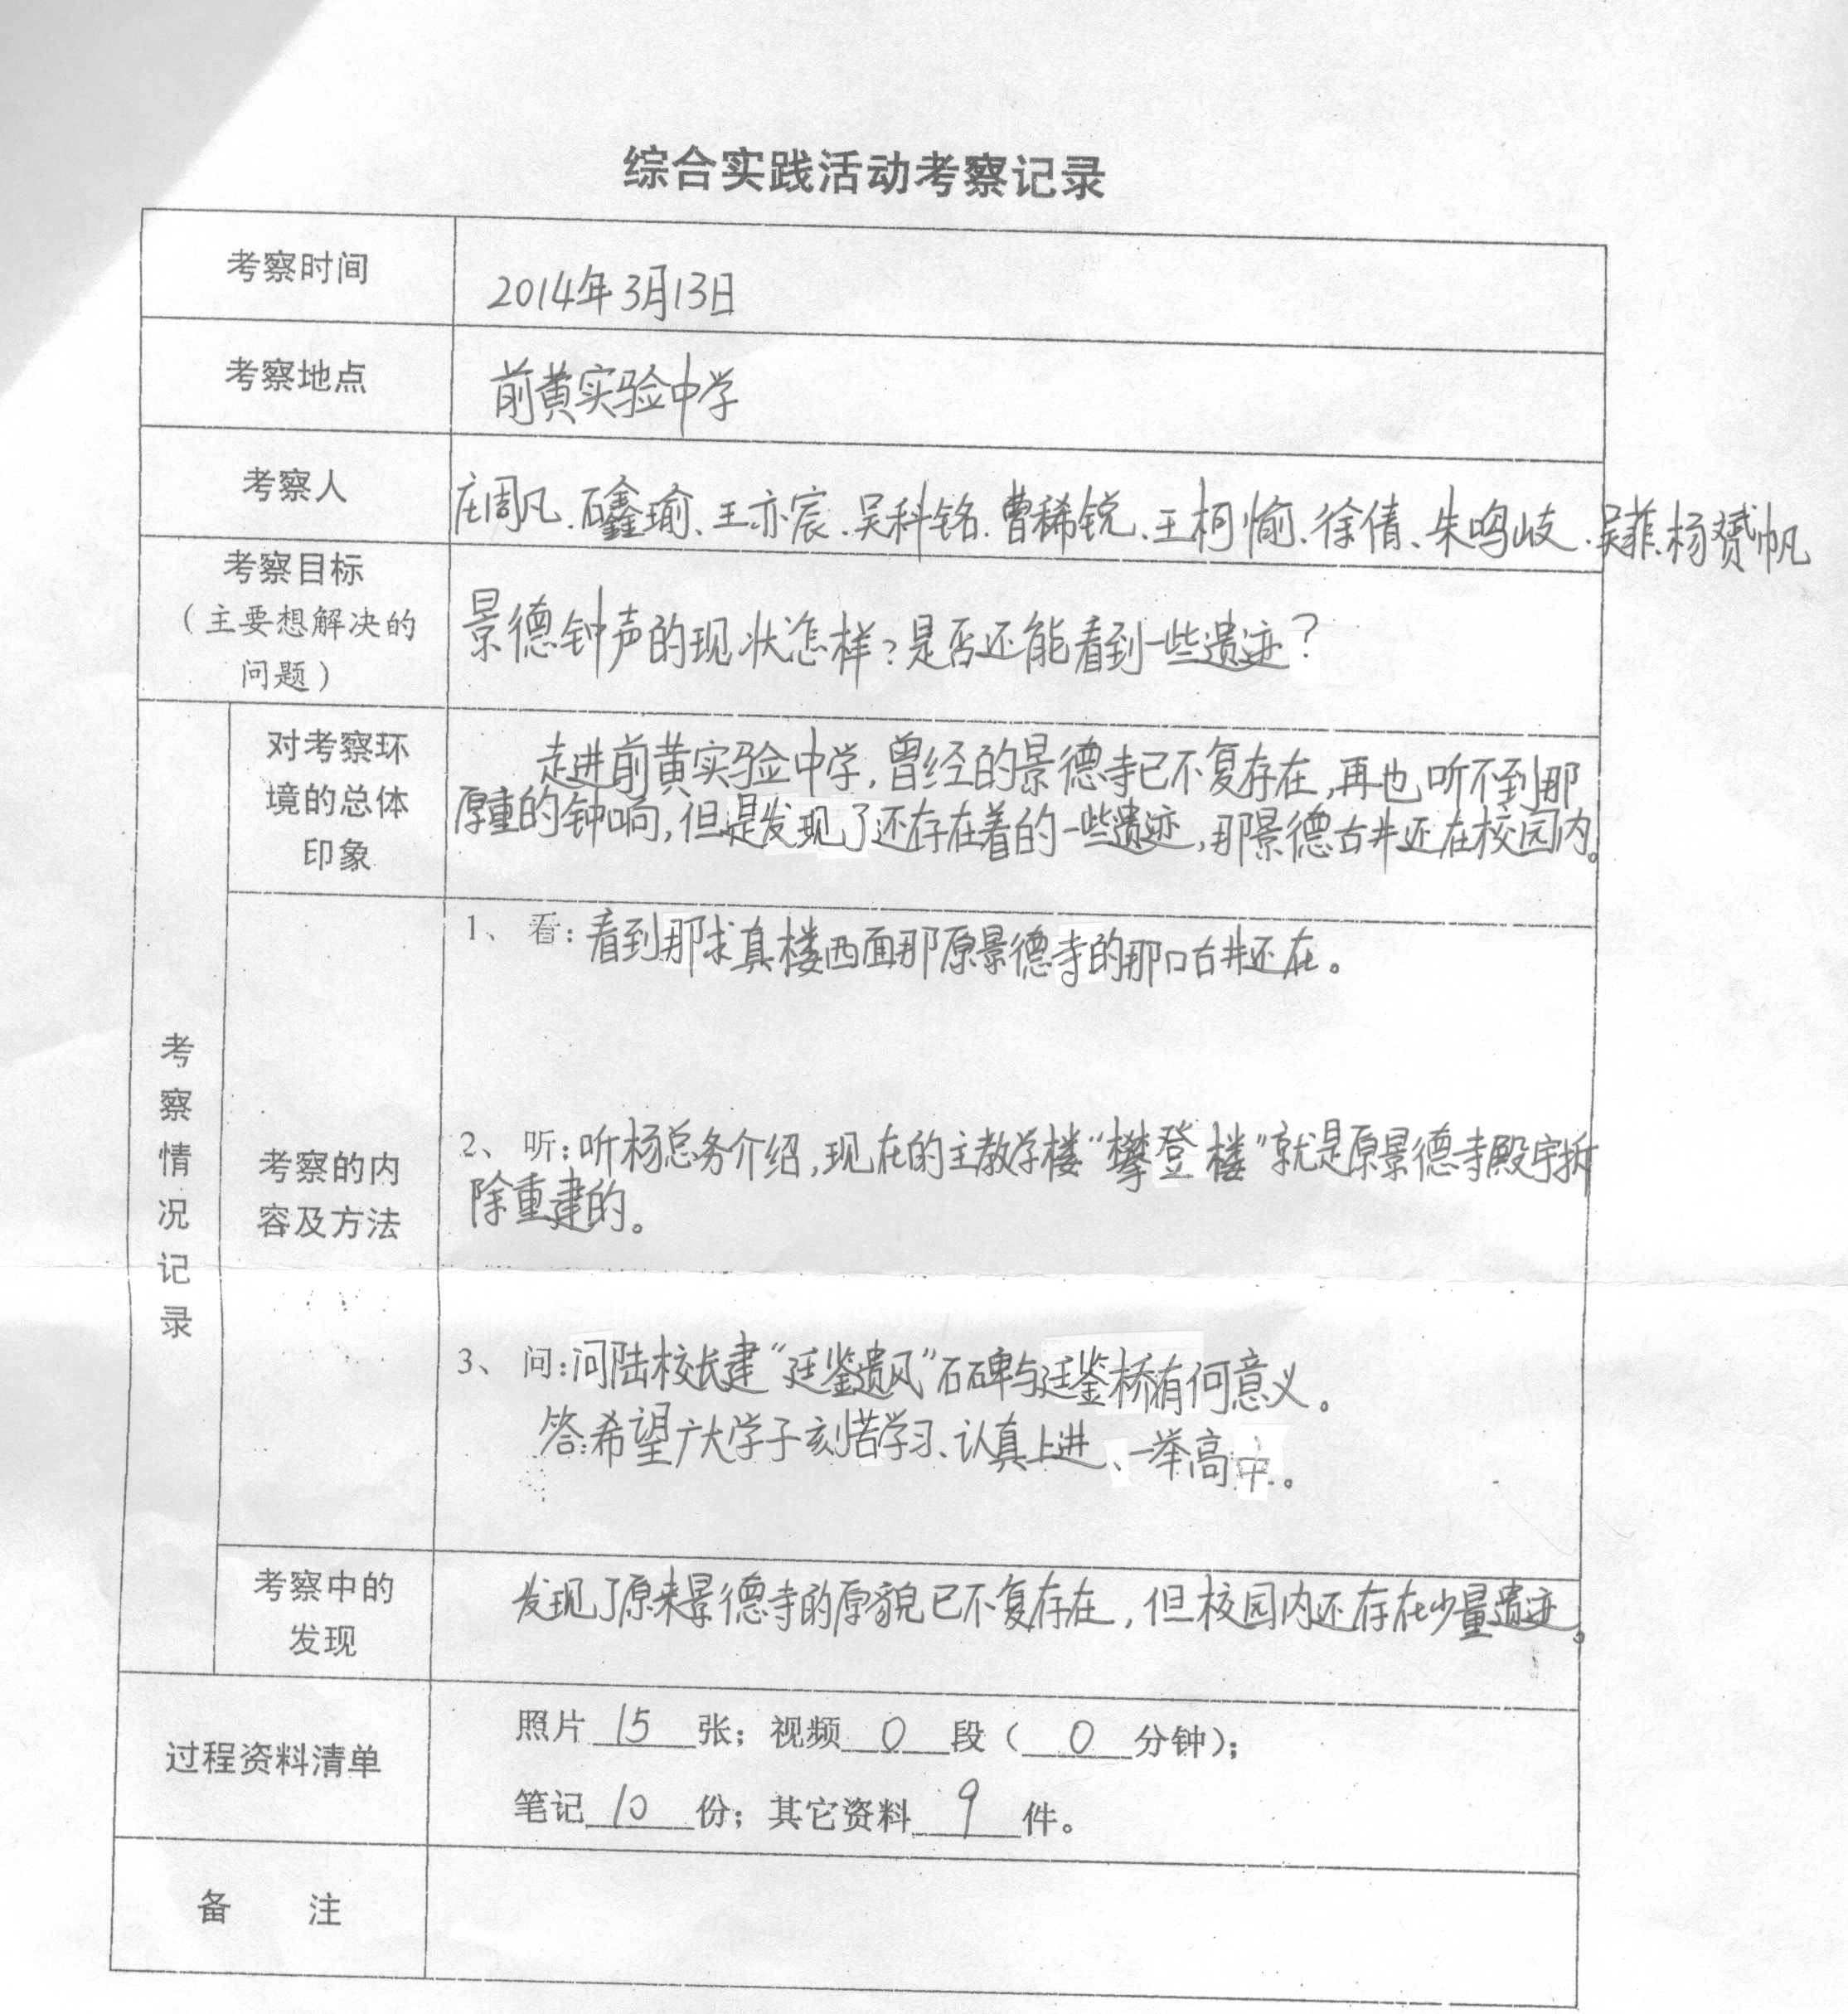 综合实践活动考察记录
考察时间
2014年3月13日
考察地点
前黄实验中学
考察人
庄周凡、石鑫瑜、王亦宸、吴科铭、曹稀锐、王柯愉、徐倩、朱鸣岐、吴菲、杨赟帆
考察目标
（主要想解决的
问题）
景德钟声的现状怎样？是否还能看到一些遗迹？
考察情况记录
对考察环
境的总体
印象
走进前黄实验中学，曾经的景德寺已不复存在，再也听不到那
厚重的钟响，但是发现了还存在着的一些遗迹，那景德古井还在校园内。
考察的内
容及方法
1、看：看到那求真楼西面那原景德寺的那口古井还在。
2、听：听杨总务介绍，现在的主教学楼“攀登楼”就是原景德寺殿宇拆
除重建的。
3、问：问陆校长建“廷鉴遗风”石碑与廷鉴桥有何意义。
答：希望广大学子刻苦学习、认真上进、一举高中。
考察中的
发现
发现了原来景德寺的原貌已不复存在，但校园内还存在少量遗迹。
过程资料清单
照片 15 张；视频 0 段（ 0 分钟）；
笔记 10 份；其它资料 9 件。
备 注